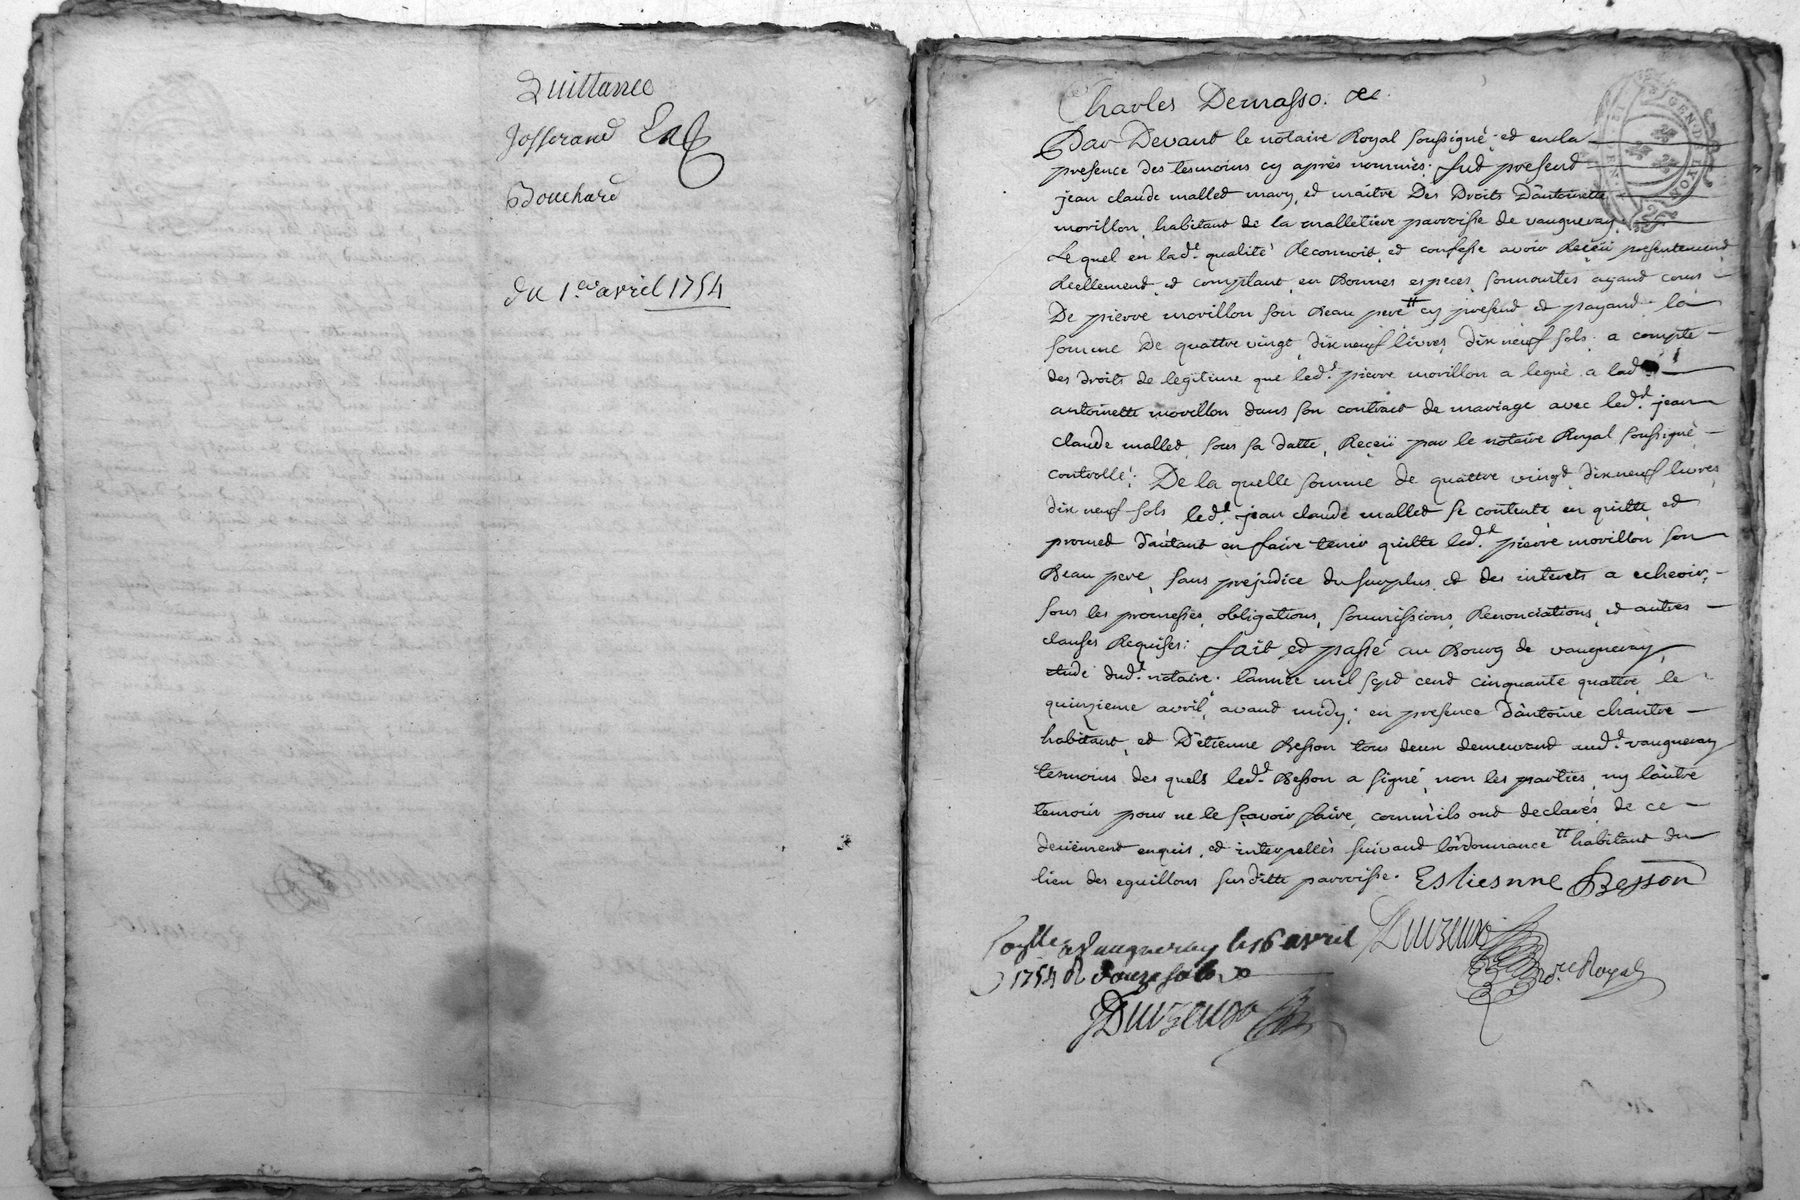 Quittance
Josserand Et
Bouchard
du 1.er avril 1754
Charles Demasso. &c
Par Devant le notaire Royal soussigné; et en la
presence des tesmoins cy après nommés. fut present
jean claude mallet mary, et maître Des Droits D'antoinette
morillon, habitant de la malletiere parroisse de vaugneray,
Lequel en lad.e qualité Reconnoit, et confesse avoir Reçeü presentement
Réellement, et comptant, en Bonnes especes, sonnantes ayant cours
De pierre morillon son Beau pere tt cy present et payant la
somme De quattre vingt, dix neuf livres, dix neuf sols. a compte
des droits de legitime que led.t pierre morillon a legué a lad.
antoinette morillon dans son contract de mariage avec led.t jean
claude mallet, sous sa datte, Reçeü par le notaire Royal soussigné,
controllé; De la quelle somme de quattre vingt, dix neuf livres,
dix neuf sols led.t jean claude mallet se contente, en quitte, et
promet d'autant en faire tenir quitte led.t pierre morillon son
Beau pere, sans prejudice du surplus, et des interets a echeoir,
sous les promesses, obligations, soumissions, Renonciations, et autres
clauses Requises; fait et passé au Bourg de vaugneray,
etude dud.t notaire. l'année mil sept cent cinquante quattre, le
quinzieme avril, avant midy; en presence d'antoine chantre
habitant, et D'etienne Besson tous deux demeurant aud.t vaugneray
tesmoins, des quels led.t Besson a signé, non les parties, ny l'autre
temoin pour ne le sçavoir faire, comm'ils ont declarés, de ce
deüement enquis, et interpellés suivant l'ordonnance tt habitant du
lieu des eguillons susditte parroisse. Estiesnne Besson
a Vaugneray le 16 avril
1754 R douze sols
n.re Royal